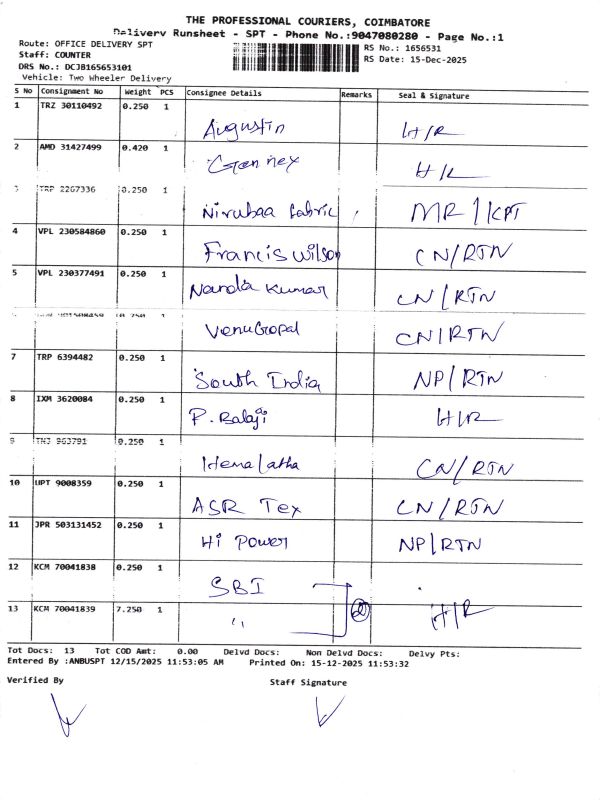 THE PROFESSIONAL COURIERS, COIMBATORE
Delivery Runsheet - SPT - Phone No.:9047080280 - Page No.:1
Route: OFFICE DELIVERY SPT
Staff: COUNTER
DRS No.: DCJB165653101
Vehicle: Two Wheeler Delivery
RS No.: 1656531
RS Date: 15-Dec-2025
S No Consignment No Weight PCS Consignee Details Remarks Seal & Signature
1 TRZ 30110492 0.250 1
Augustin H/R
2 AMD 31427499 0.420 1
Gennex H/R
3 TRP 2267336 0.250 1
Nirubaa fabric MR/KPT
4 VPL 230584860 0.250 1
Francis Wilson CN/RTN
5 VPL 230377491 0.250 1
Nanda Kumar CN/RTN
0.250 1
VenuGopal CN/RTN
7 TRP 6394482 0.250 1
South India NP/RTN
8 IXM 3620084 0.250 1
P. Balaji H/R
9 TNJ 963791 0.250 1
Hemalatha CN/RTN
10 UPT 9008359 0.250 1
ASR Tex CN/RTN
11 JPR 503131452 0.250 1
Hi Power NP/RTN
12 KCM 70041838 0.250 1
SBI
13 KCM 70041839 7.250 1
" H/R
Tot Docs: 13 Tot COD Amt: 0.00 Delvd Docs: Non Delvd Docs: Delvy Pts:
Entered By :ANBUSPT 12/15/2025 11:53:05 AM Printed On: 15-12-2025 11:53:32
Verified By Staff Signature